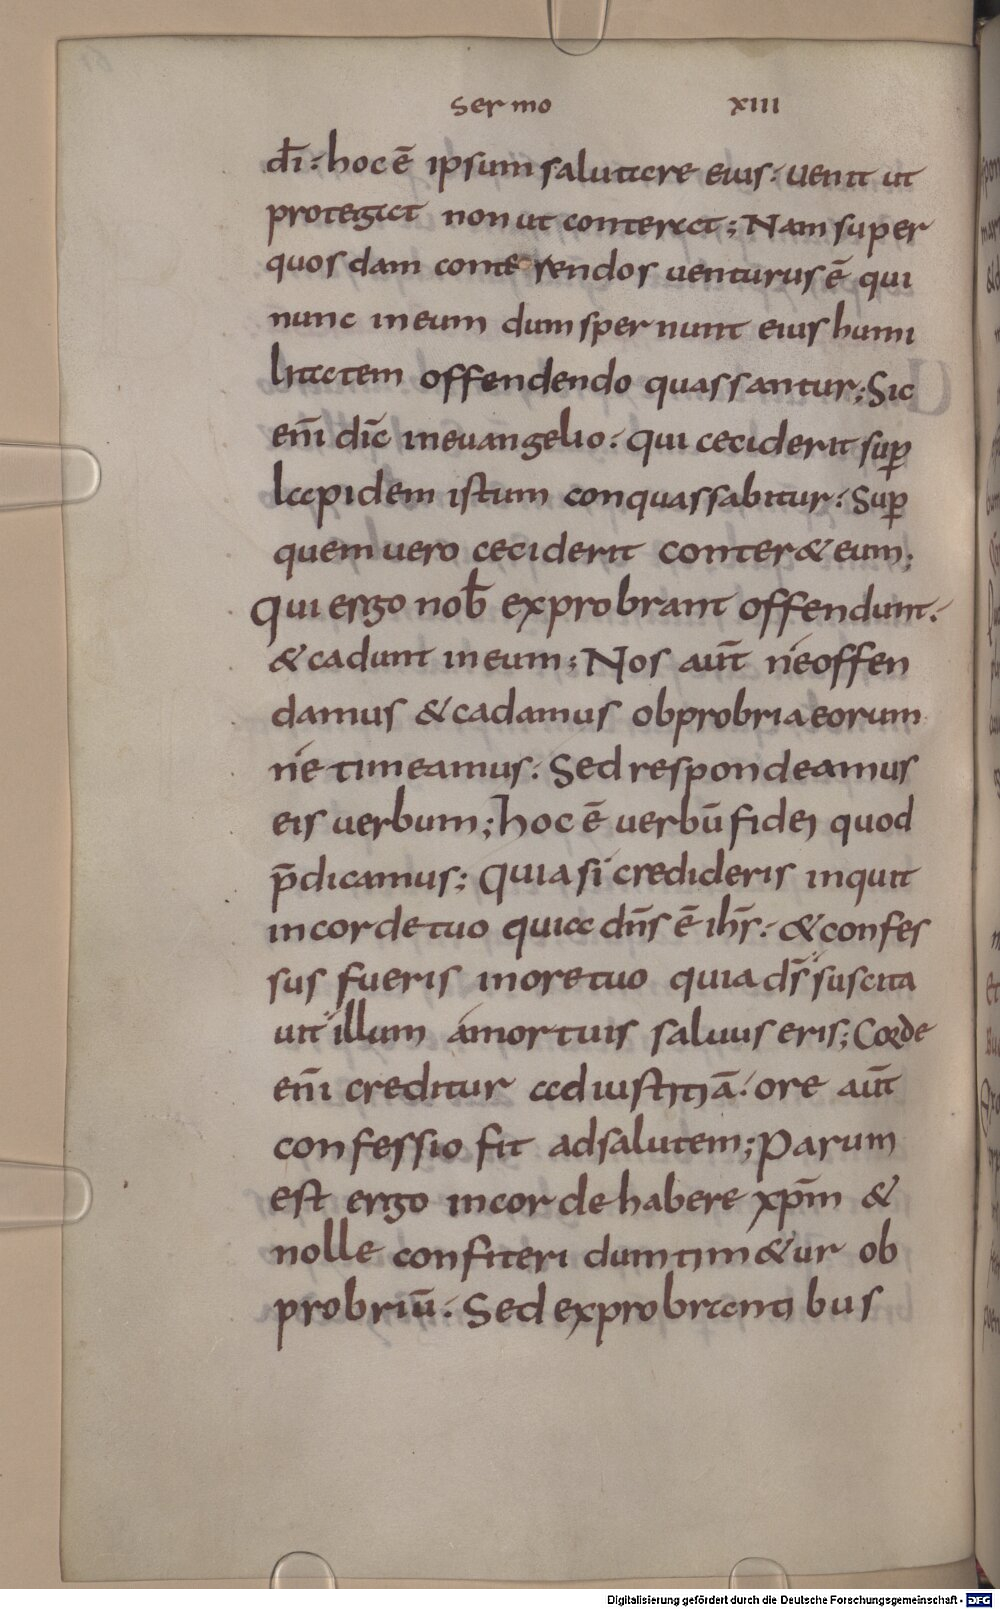 Sermo XIII
dī. hoc ē ipsum salutare eius. uenit ut
protegat non ut conterat; Nam super
quosdam conterendos uenturus ē qui
nunc in eum dum spernunt eius humi
litatem offendendo quassantur; Sic
enī dic̄ in euangelio. qui ceciderit suꝑ
lapidem istum conquassabitur. Suꝑ
quem uero ceciderit conter& eum;
Qui ergo nob̄ exprobrant offendunt.
& cadunt in eum; Nos aut̄ ne offen
damus & cadamus obprobria eorum
ne timeamus. Sed respondeamus
eis uerbum; hoc ē uerbū fidei quod
p̄dicamus; Quia si credideris inquit
in corde tuo quia dn̄s ē ih̄s. & confes
sus fueris in ore tuo quia ds̄ suscita
uit illum a mortuis saluus eris; Corde
enī creditur ad iustitiā. ore aut̄
confessio fit ad salutem; Parum
est ergo in corde habere xp̄m &
nolle confiteri dum tim&ur ob
probriū. Sed exprobrantibus
Digitalisierung gefördert durch die Deutsche Forschungsgemeinschaft - DFG